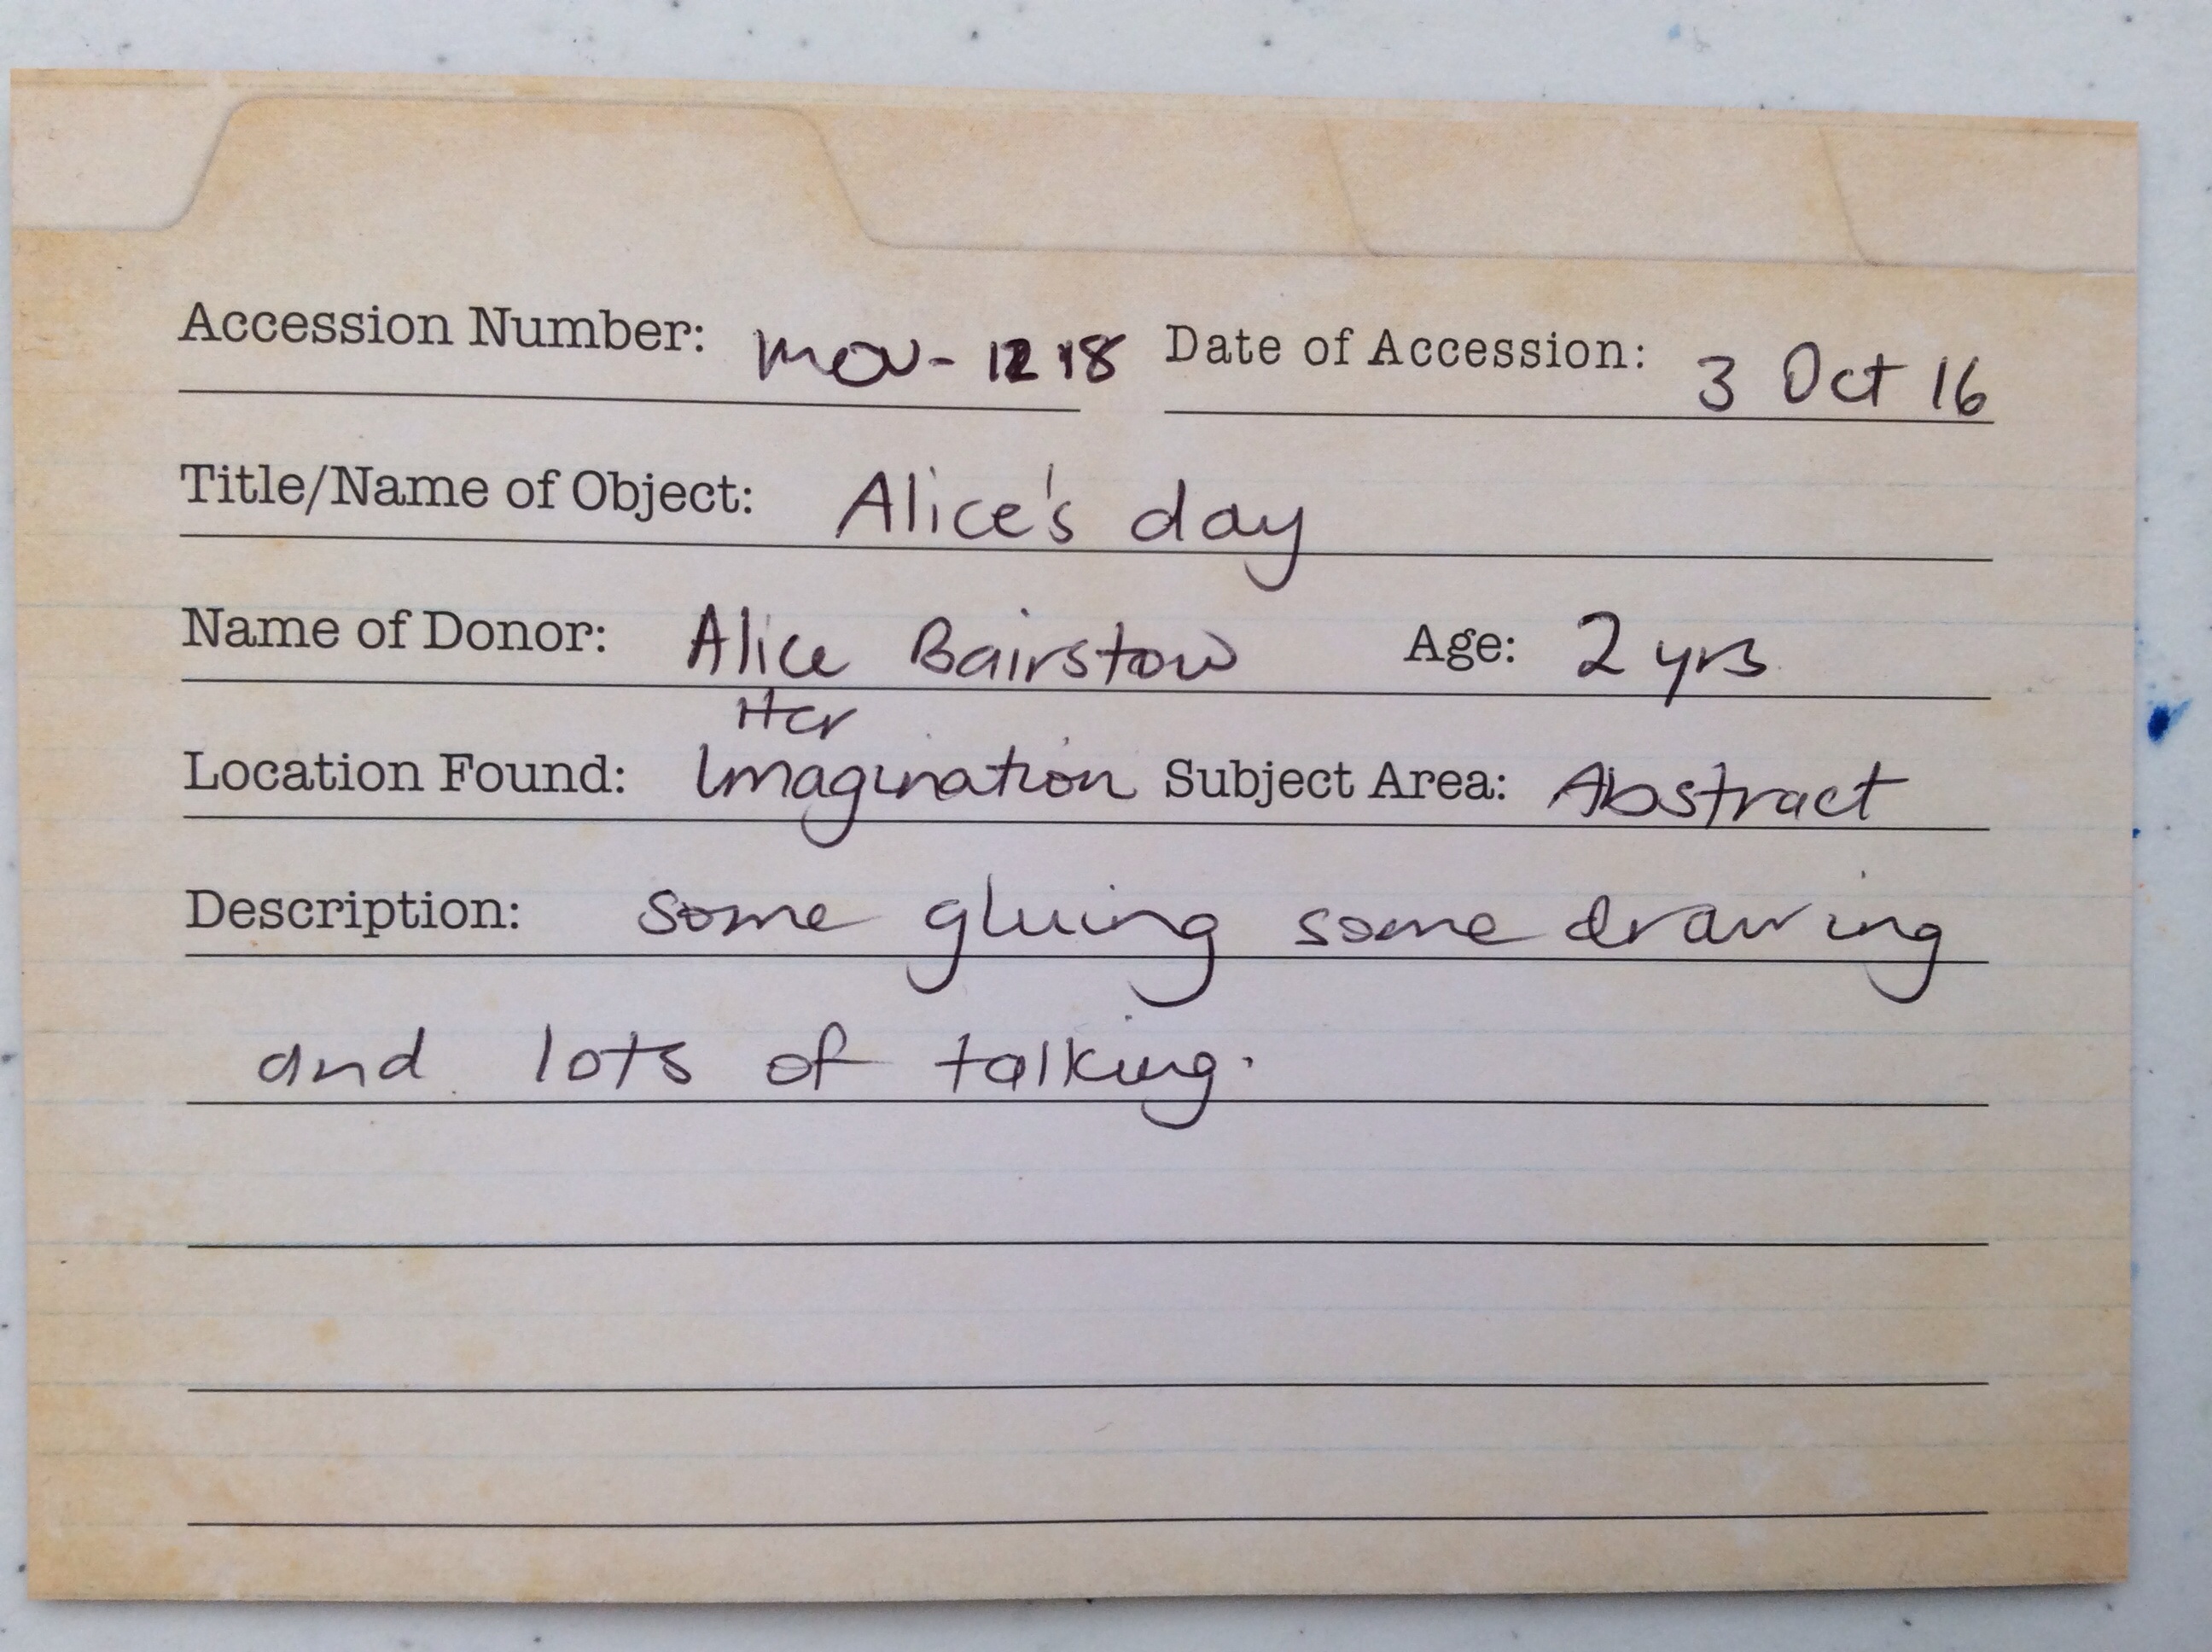 Accession Number: mov-1218 Date of Accession: 3 Oct 16
Title/Name of Object: Alice's day
Name of Donor: Alice Bairstow Age: 2 yrs
Her
Location Found: Imagination Subject Area: Abstract
Description: some gluing some drawing
and lots of talking.